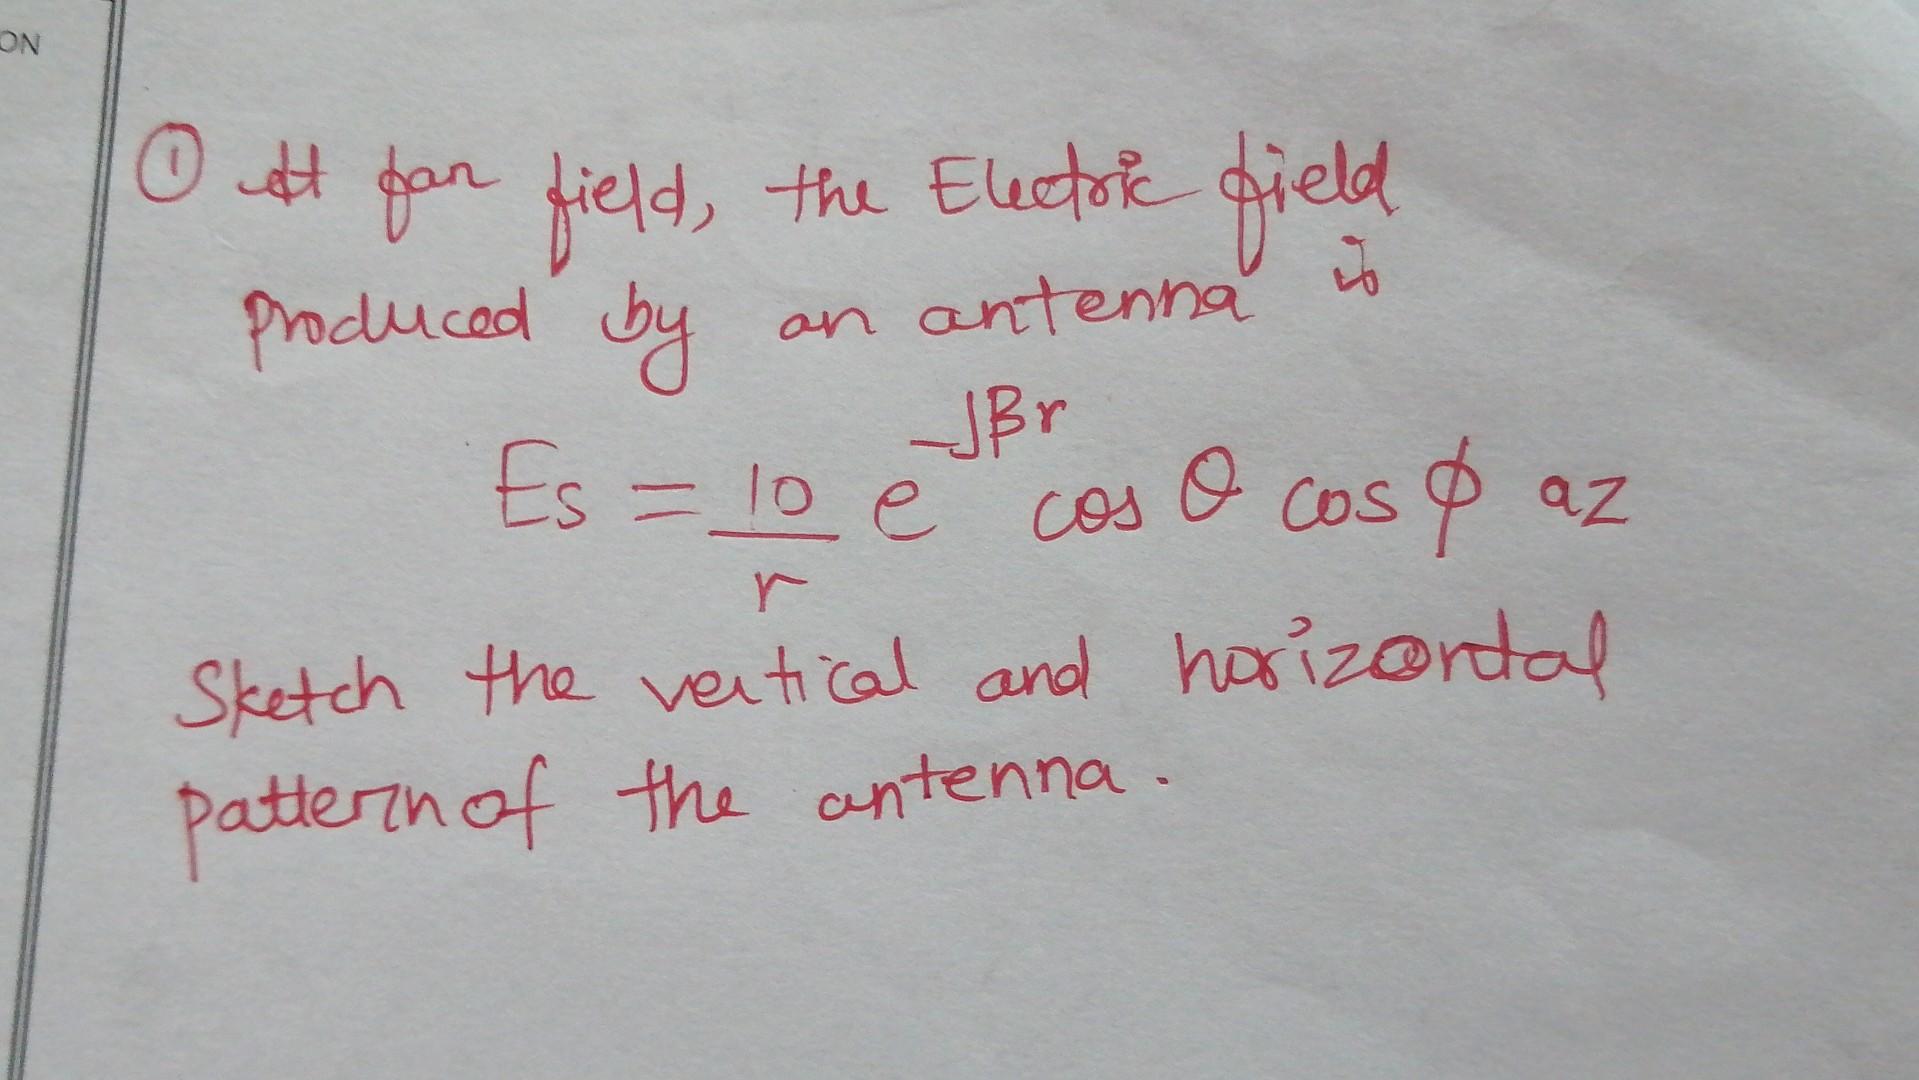 ON
① At far field, the Electric field
produced by an antenna is
Es = 10/r e^-jβr cos θ cos φ az
Sketch the vertical and horizontal
pattern of the antenna.